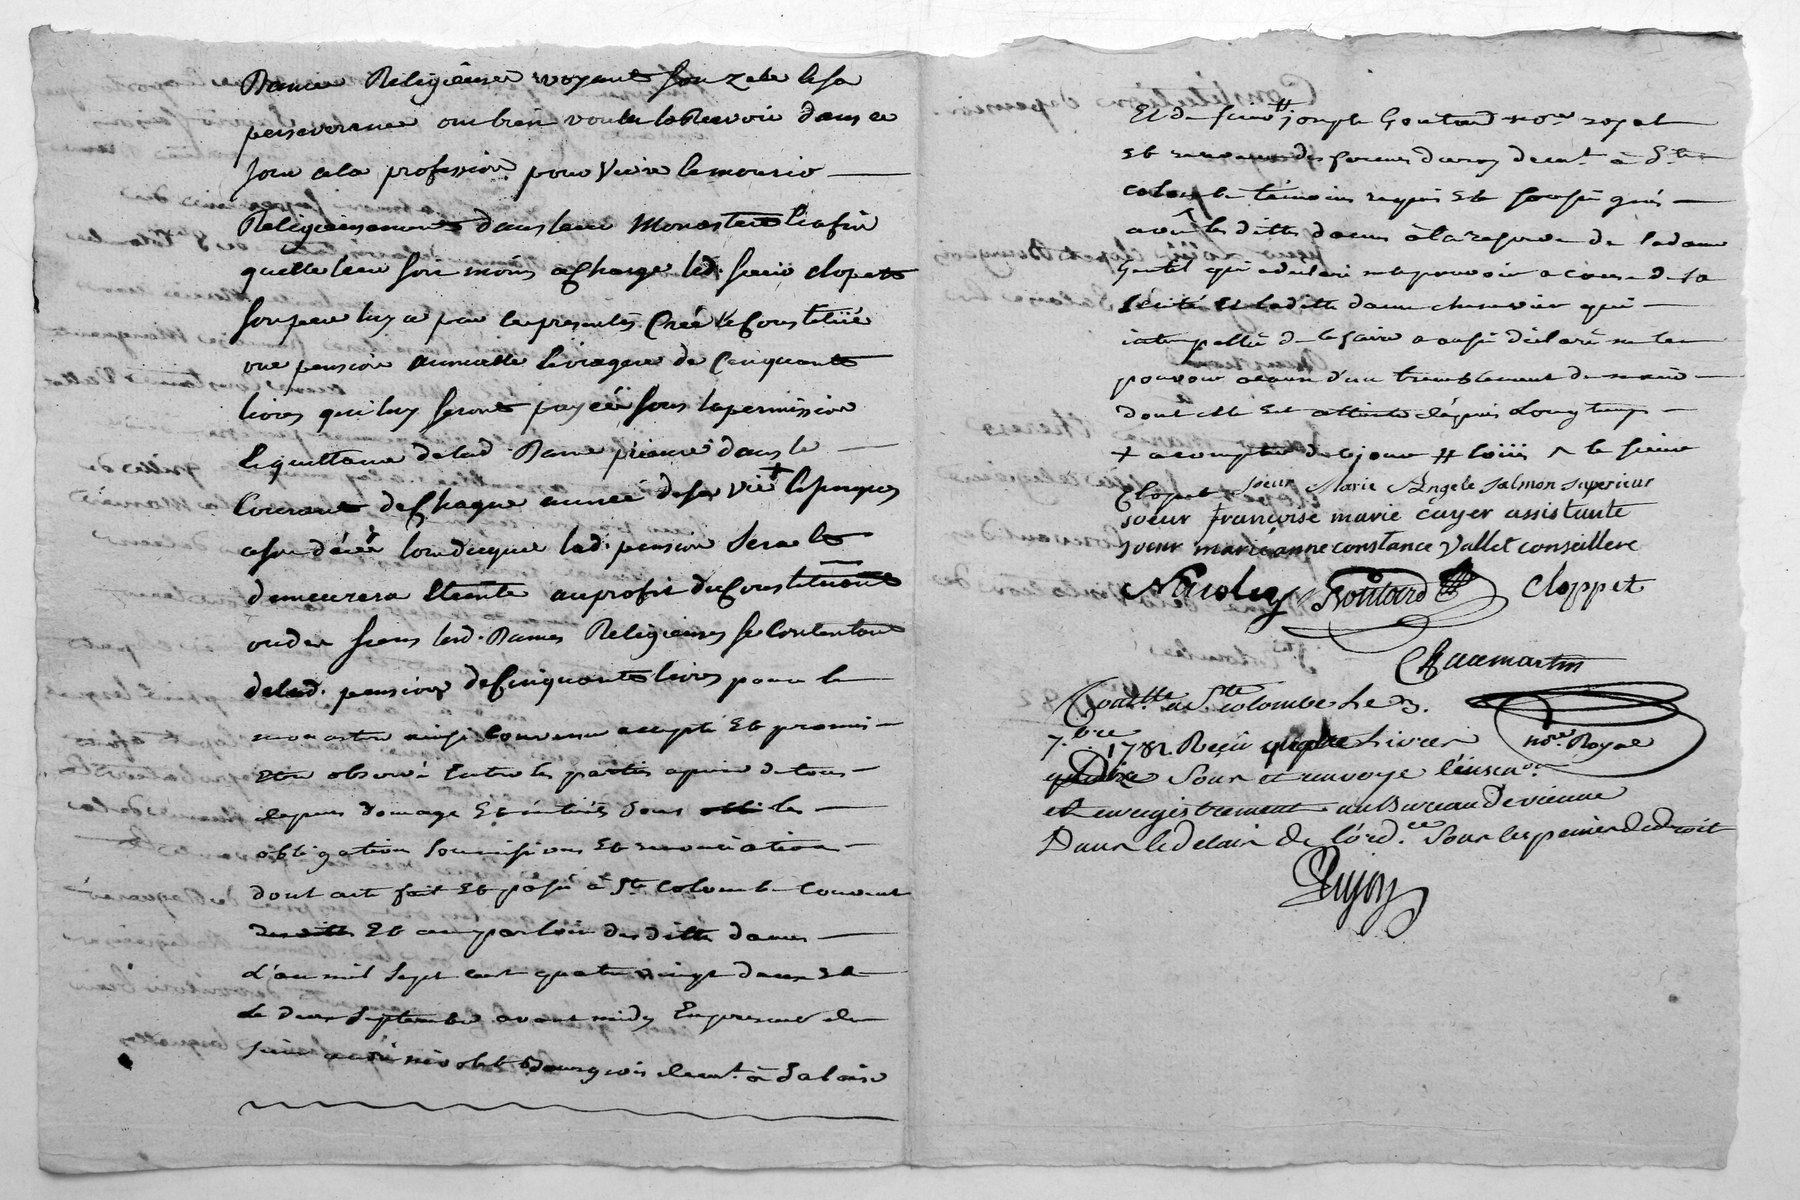 Dames Religieuses voyant son zele & sa
perseverance ont bien voulu la Recevoir dans ce
jour a la profession pour vivre & mourir
Religieusement dans leur Monastere & afin
quelle leur soit moins a Charge led. sieur Clopet
son pere luy a par ces presentes Créé & Constitué
une pension annuelle & viagere de Cinquante
livres qui luy seront payéés sous la permission
& quittance de lad. Dame prieure dans le
Courant de Chaque année de sa vie + & jusques
a son décés lors duquel lad. pension sera &
demeurera éteinte au profit du Constituant
ou des siens lesd. Dames Religieuses se Contentant
de lad. pension de Cinquante livres pour le
monastere ainsi Convenu accepté Et promis
Etre observé Entre les parties a peine de tous
depens domage Et intérêts sous les
obligation soumissions Et renonciation
dont acte fait Et passé à Ste Colombe Couvent
Et au parloir des dittes dames
l'an mil sept cent quatre vingt deux Et
le deux septembre avant midy En presence de
sieur andré nicolet Bourgeois demt. à Salaise
Et de sieur # joseph Goutard no.re royal
Et receveur des demt. à Ste
colombe témoins requis Et soussignés
avec les dittes dames à la reserve de la dame
Gentil qui a declaré ne le pouvoir a cause de sa
Cécité Et la ditte dame qui
interpellée de le faire a aussi déclaré ne le
pouvoir a cause d'un tremblement de main
dont elle Est atteinte depuis Longtemps
+ a compter de ce jour # loüis ^ le sieur
Clopet soeur Marie Angele Salmon superieur
soeur françoise marie cayer assistante
soeur marie anne constance Vallet conseillere
Nicolet Goutard Cloppet
Chaumartin
no.re Royal
Contr.lle a S.te colombe le 3.
7.bre 1782 Reçu quatre Livres
Sous et renvoye l'insin.on
et enregistrement au Bureau de vienne
Dans le delair de l'ord.ce Sous les peines de droit
Dujon